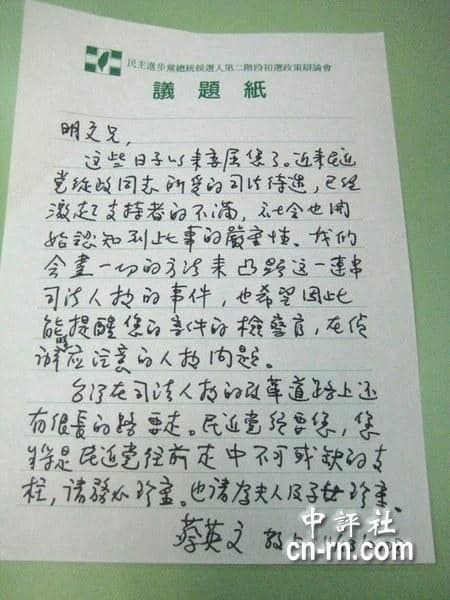 民主進步黨總統候選人第二階段初選政策辯論會
議題紙
明文兄,
這些日子以來委屈您了。近來民進
党從政同志所受的司法待遇,已經
激起支持者的不滿,社会也開
始認知到此事的嚴重性。我們
会盡一切的方法來凸顯這一連串
司法人权的事件,也希望因此
能夠提醒您的案件的檢警官,在偵
辦應注意的人权问題。
台湾在司法人权的改革道路上还
有很長的路要走。民進党須要您,您
將是民進党往前走中不可或缺的支
柱,請務必珍重。也請尊夫人及子女珍重。
蔡英文 敬上
中評社
cn-rn.com